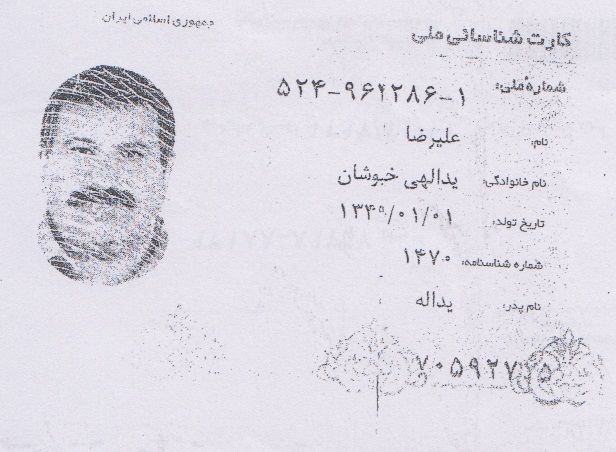 جمهوری اسلامی ایران
کارت شناسائی ملی
شماره ملی: ۵۲۴-۹۶۲۲۸۶-۱
نام: علیرضا
نام خانوادگی: یدالهی خبوشان
تاریخ تولد: ۱۳۴۹/۰۱/۰۱
شماره شناسنامه: ۱۴۷۰
نام پدر: یداله